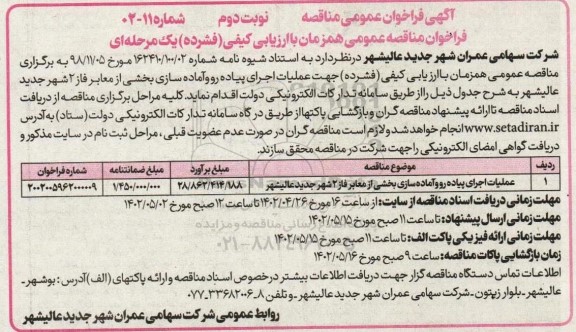 آگهی فراخوان عمومی مناقصه نوبت دوم شماره ۱۱-۰۲
فراخوان مناقصه عمومی همزمان با ارزیابی کیفی (فشرده) یک مرحله‌ای
شرکت سهامی عمران شهر جدید عالیشهر در نظر دارد به استناد شیوه نامه شماره ۱۶۲۴۱۰/۱۰۰/۰۲ مورخ ۹۸/۱۱/۰۵ به برگزاری
مناقصه عمومی همزمان با ارزیابی کیفی (فشرده) جهت عملیات اجرای پیاده رو و آماده سازی بخشی از معابر فاز ۲ شهر جدید
عالیشهر به شرح جدول ذیل را از طریق سامانه تدارکات الکترونیکی دولت اقدام نماید. کلیه مراحل برگزاری مناقصه از دریافت
اسناد مناقصه تا ارائه پیشنهاد مناقصه گران و بازگشایی پاکتها از طریق درگاه سامانه تدارکات الکترونیکی دولت (ستاد) به آدرس
www.setadiran.ir انجام خواهد شد و لازم است مناقصه گران در صورت عدم عضویت قبلی، مراحل ثبت نام در سایت مذکور و
دریافت گواهی امضای الکترونیکی را جهت شرکت در مناقصه محقق سازند.
ردیف موضوع مناقصه مبلغ برآورد مبلغ ضمانتنامه شماره فراخوان
۱ عملیات اجرای پیاده رو و آماده سازی بخشی از معابر فاز ۲ شهر جدید عالیشهر ۲۸/۸۶۲/۴۱۴/۱۸۸ ۱/۴۵۰/۰۰۰/۰۰۰ ۲۰۰۲۰۰۵۹۶۲۰۰۰۰۰۹
مهلت زمانی دریافت اسناد مناقصه از سایت: از ساعت ۱۶ مورخ ۱۴۰۲/۰۴/۲۶ تا ساعت ۱۲ صبح مورخ ۱۴۰۲/۰۵/۰۲
مهلت زمانی ارسال پیشنهاد: تا ساعت ۱۱ صبح مورخ ۱۴۰۲/۰۵/۱۵
مهلت زمانی ارائه فیزیکی پاکت الف: تا ساعت ۱۱ صبح مورخ ۱۴۰۲/۰۵/۱۵
زمان بازگشایی پاکات مناقصه: ساعت ۹ صبح مورخ ۱۴۰۲/۰۵/۱۶
اطلاعات تماس دستگاه مناقصه گزار جهت دریافت اطلاعات بیشتر در خصوص اسناد مناقصه و ارائه پاکتهای (الف) آدرس: بوشهر-
عالیشهر- بلوار زیتون- شرکت سهامی عمران شهر جدید عالیشهر- و تلفن ۸-۳۳۶۸۲۰۰۶-۰۷۷
روابط عمومی شرکت سهامی عمران شهر جدید عالیشهر